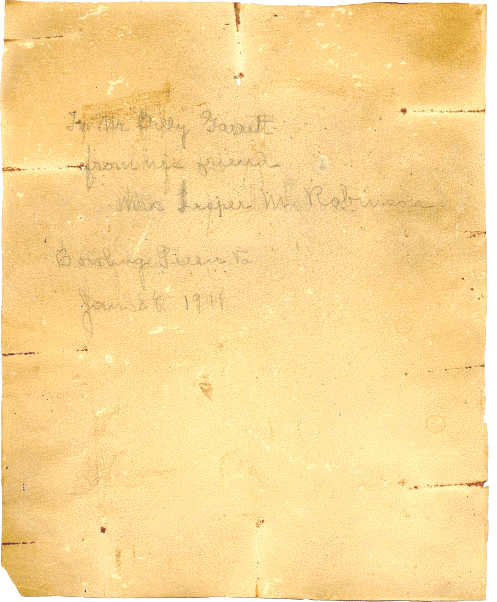 To Mr Billy Garrett
from his friend
Mrs Jasper M. Robinson
Bowling Green Va
Jan 28 1941